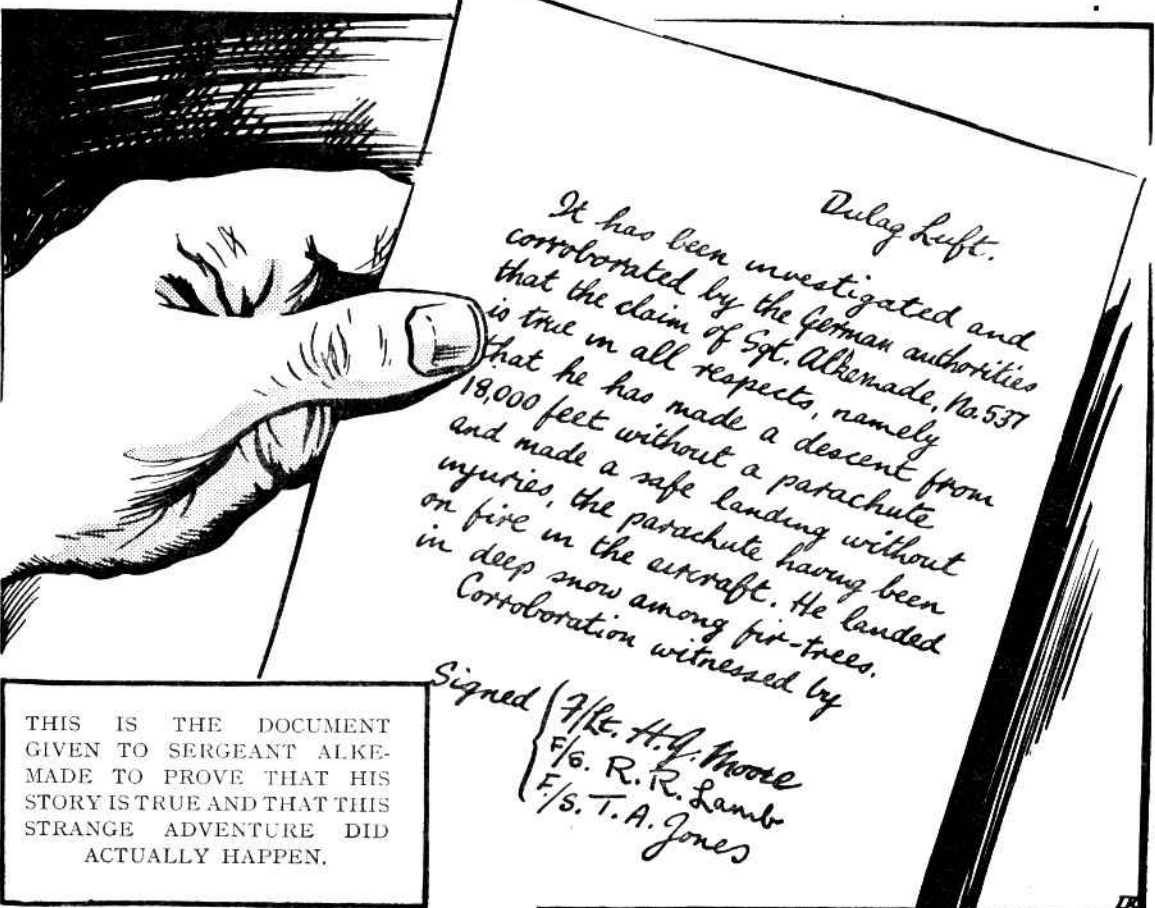 Dulag Luft.
It has been investigated and
corroborated by the German authorities
that the claim of Sgt. Alkemade, No. 537
is true in all respects, namely
that he has made a descent from
18,000 feet without a parachute
and made a safe landing without
injuries, the parachute having been
on fire in the aircraft. He landed
in deep snow among fir-trees.
Corroboration witnessed by
Signed
F/Lt. H.J. Moore
F/S. R. R. Lamb
F/S. T. A. Jones
THIS IS THE DOCUMENT
GIVEN TO SERGEANT ALKE-
MADE TO PROVE THAT HIS
STORY IS TRUE AND THAT THIS
STRANGE ADVENTURE DID
ACTUALLY HAPPEN.